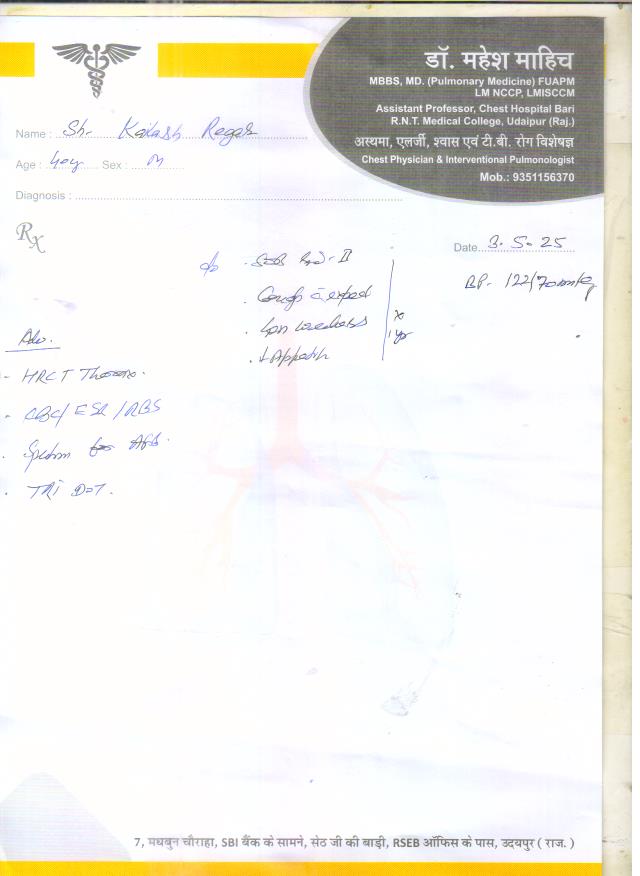 डॉ. महेश माहिच
MBBS, MD. (Pulmonary Medicine) FUAPM
LM NCCP, LMISCCM
Assistant Professor, Chest Hospital Bari
R.N.T. Medical College, Udaipur (Raj.)
अस्थमा, एलर्जी, श्वास एवं टी.बी. रोग विशेषज्ञ
Chest Physician & Interventional Pulmonologist
Mob.: 9351156370
Name : Sh. Kailash Regar
Age : 40y Sex : M
Diagnosis :
Rx
Date 3.5.25
BP- 122/70 mmHg
c/o . SOB - II
. Cough c expect
. weakness
. ↓Appetite
x
1 yr
Adv.
- HRCT Thorax.
- CBC/ESR/RBS
. Sputum for AFB.
. D=7.
7, मधबुन चौराहा, SBI बैंक के सामने, सेठ जी की बाड़ी, RSEB ऑफिस के पास, उदयपुर ( राज. )